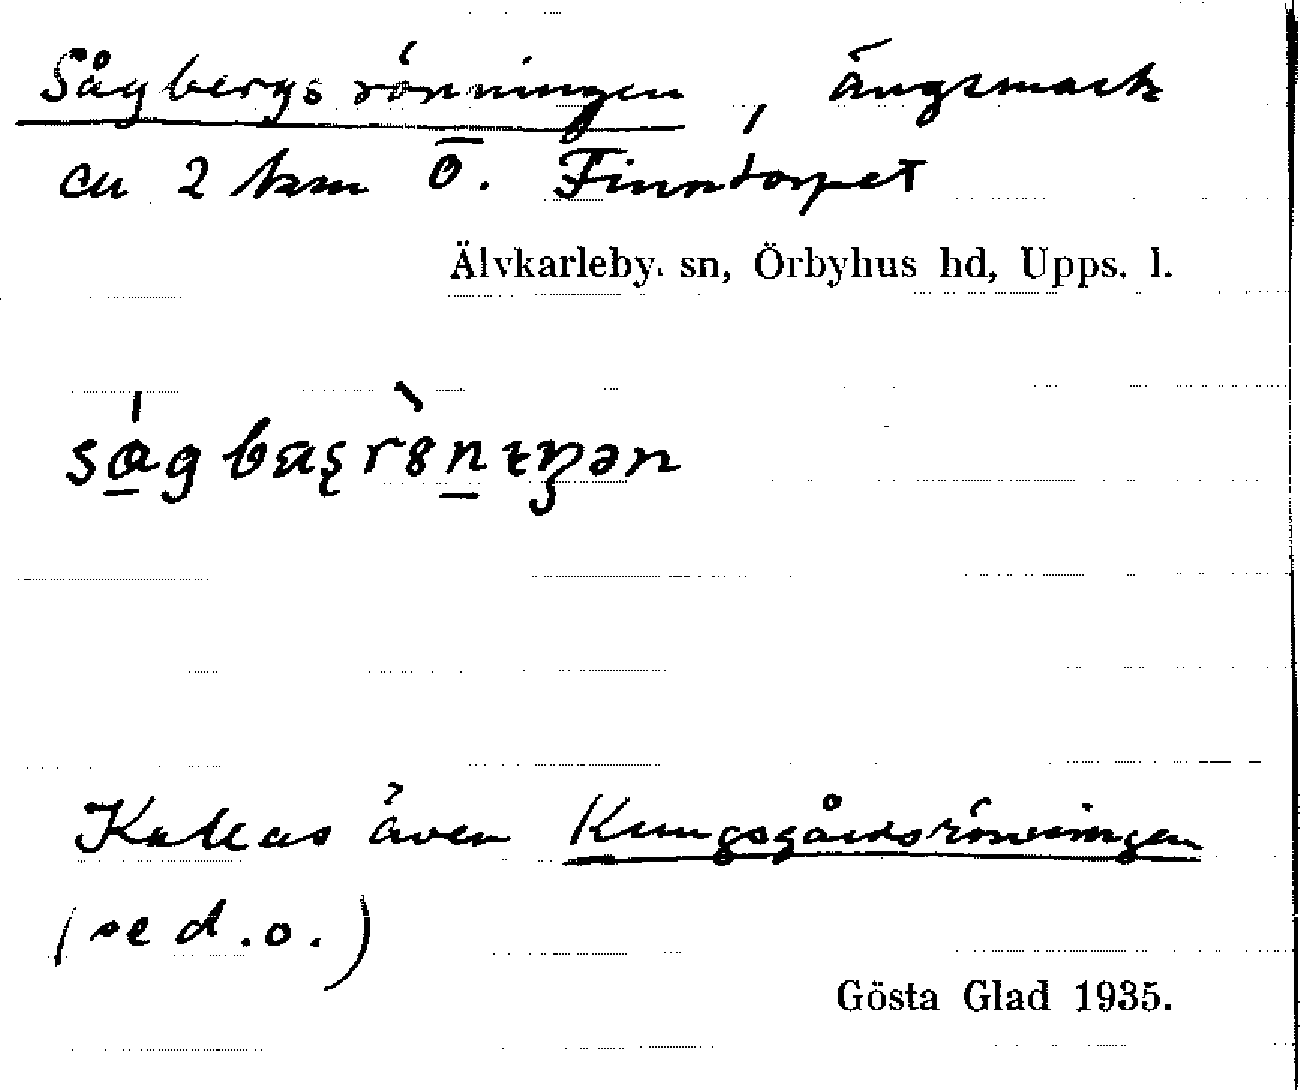 Sågbergsrönningen, ängsmark
ca 2 km Ö. Finntorpet
Älvkarleby. sn, Örbyhus hd, Upps. l.
Kallas även Kungsgårdsrönningen
(se d.o.)
Gösta Glad 1935.